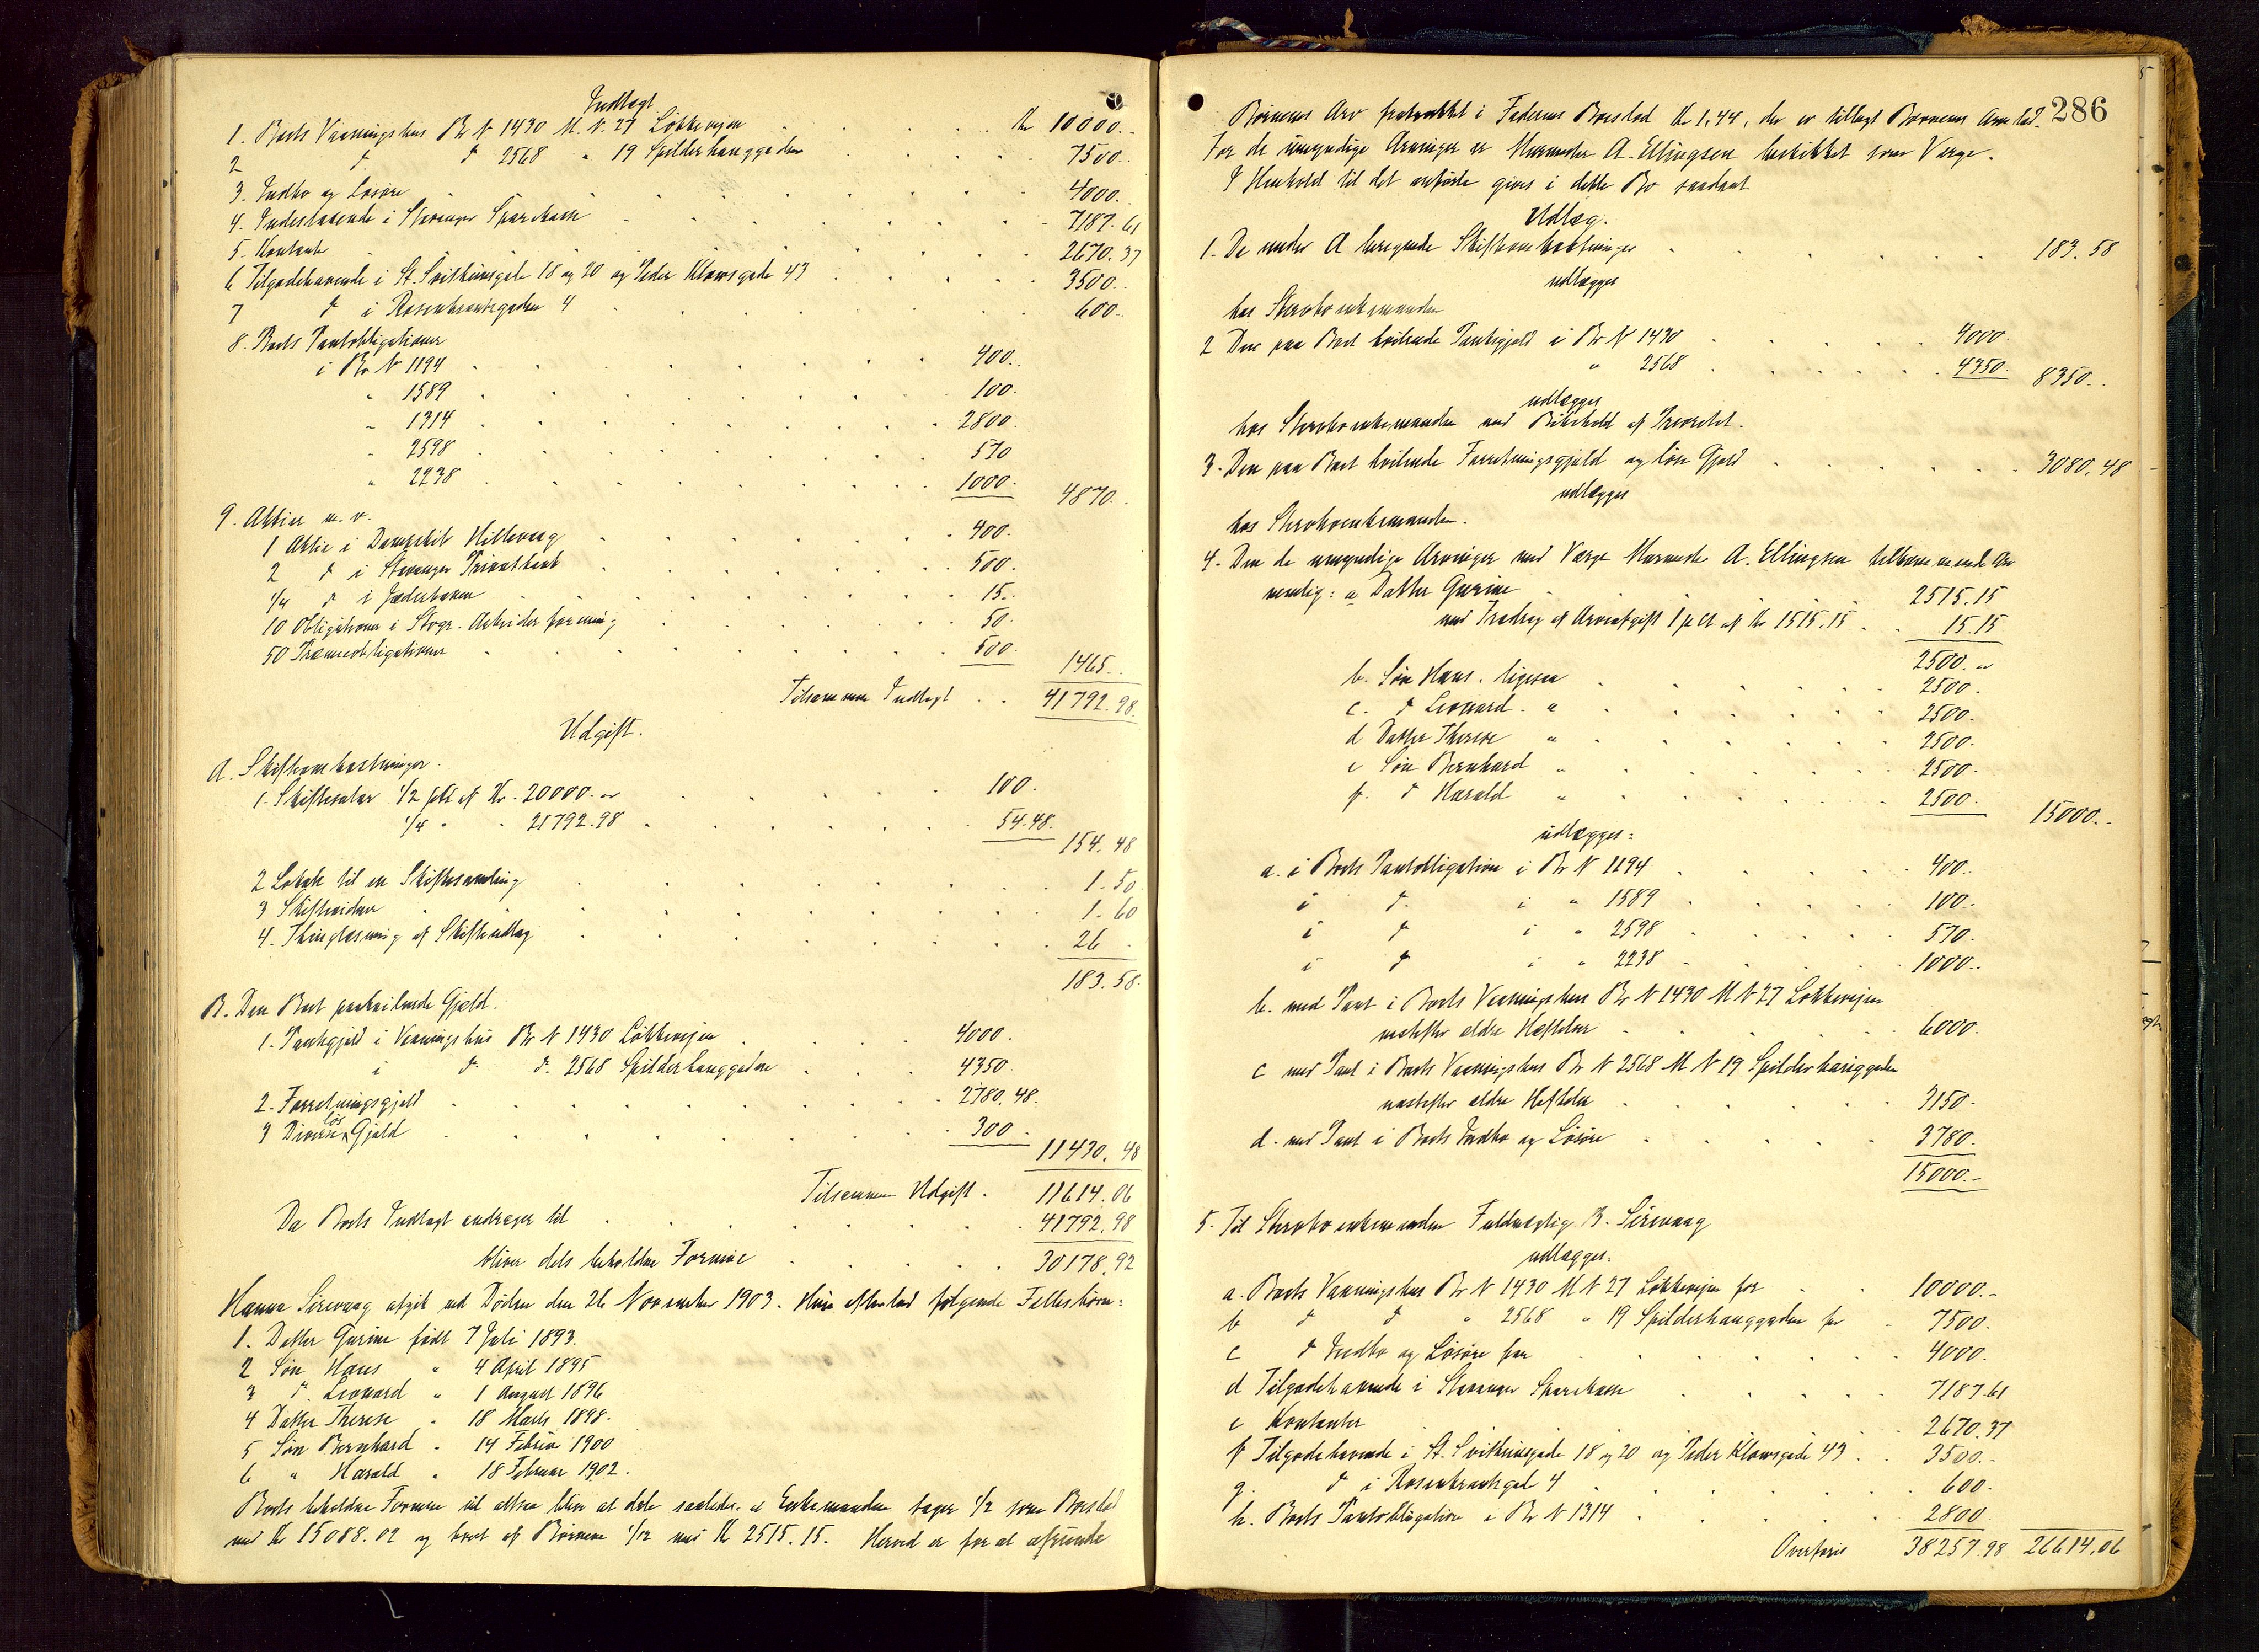 Indtægt
1. Boets Vaaningshus Br N 1430 M. N. 27 Løkkeveien Kr 10000.-
2 d d 2568 " 19 Spilderhauggaden 7500.-
3. Indbo og Løsøre 4000.
4. Indestaaende i Stavanger Sparekasse 7187.61
5. Kontant 2670.37
6 Tilgodehavende i St. Svithunsgade 18 og 20 og Peder Klowsgade 43 3500.-
7 d i Rosenkrantzgaden 4 600.-
8. Boets Pantobligationer
i Br N 1194 400.
" 1589 100.
" 1314 2800.
" 2598 570
" 2238 1000. 4870.-
9. Aktier m.v.
1 Aktie i Dampskib Hillevaag 400.
2 d i Stavanger Privatbank 500.
1/4 d i Jæderbanen 15.
10 Obligationer i Stvgr. Arbeiderforening 50.
50 Præmieobligationer 500. 1465.-
Tilsammen Indtægt 41792.98
Udgift.
A. Skifteomkostninger.
1. Skiftesalær 1/2 pCt af Kr. 20000.- 100.
1/4 " 21792.98 54.48. 154.48
2 Lokale til en Skiftesamling 1.50
3 Skiftevidner 1.60
4. Thinglæsning af Skifteudlæg 26.
183.58.
B. Den Boet paahvilende Gjæld.
1. Pantegjæld i Vaaningshus Br N 1430 Løkkeveien 4000.
i d d. 2568 Spilderhauggaden 4350.
2. Forretningsgjæld 2780.48.
3 Diverse løs Gjæld 300. 11430.48
Tilsammen Udgift 11614.06
Da Boets Indtægt andrager til 41792.98
bliver dets beholdne Formue 30178.92
Hanna Sirevaag afgik ved Døden den 26 November 1903. Hun efterlod følgende Fællesbørn:
1. Datter Gurine født 7 Juli 1893.
2 Søn Hans " 4 April 1895
3 d. Leonard " 1 August 1896
4 Datter Therese " 18 Marts 1898.
5 Søn Bernhard " 14 Februar 1900
6 " Harald " 18 Februar 1902.
Boets beholdne Formue vil altsaa blive at dele saaledes at Enkemanden tager 1/2 som Boeslod
med Kr 15088.02 og hvert af Børnene 1/12 med Kr 2515.15. Herved er for at afrunde
286
Børnenes Arv fratrukket i Faderens Boeslod Kr 1.44, der er tillagt Børnenes Arvelod.
For de umyndige Arvinger er Murmester A. Ellingsen beskikket som Verge.
I Henhold til det anførte gives i dette Bo saadant
Udlæg.
1. De under A beregnede Skifteomkostninger 183.58
udlægges
hos Stervboenkemanden
2 Den paa Boet hvilende Pantegjæld i Br N 1430 4000.
" 2568 4350. 8350.-
udlægges
hos Stervboenkemanden med Bibehold af Prioritet.
3. Den paa Boet hvilende Forretningsgjæld og løse Gjæld 3080.48
udlægges
hos Stervboenkemanden.
4. Den de umyndige Arvinger med Verge Murmester A. Ellingsen tilkommende Arv
nemlig: a Datter Gurine 2515.15
med Fradrag af Arveafgift 1 pCt af Kr 1515.15 15.15
2500.-
b. Søn Hans. ligesaa 2500.
c. d Leonard. " 2500.
d Datter Therese " 2500.
e Søn Bernhard " 2500.
f. d Harald " 2500. 15000.-
udlægges:
a. i Boets Pantobligation i Br N 1194 400.
i d. i " 1589 100.-
i d i " 2598 570.
i d i " 2238 1000.-
b. med Pant i Boets Vaaningshus Br N 1430 M N 27 Løkkeveien
næstefter ældre Hæftelser 6000.
c med Pant i Boets Vaaningshus Br N 2568 M N 19 Spilderhauggaden
næstefter ældre Hæftelser 3150.
d. med Pant i Boets Indbo og Løsøre 3780.
15000.-
5. Til Stervboenkemanden Fuldmægtig B. Sirevaag
udlægges.
a. Boets Vaaningshus Br N 1430 M N 27 Løkkeveien for 10000.-
b d d " 2568 " 19 Spilderhauggaden for 7500.
c d Indbo og Løsøre for 4000.
d Tilgodehavende i Stavanger Sparekasse 7187.61
e Kontanter 2670.37
f Tilgodehavende i St. Svithunsgade 18 og 20 og Peder Klowsgade 43 3500.-
g. d i Rosenkrantzgd 4 600.
h. Boets Pantobligation i Br N 1314 2800
Overføres 38257.98 26614.06